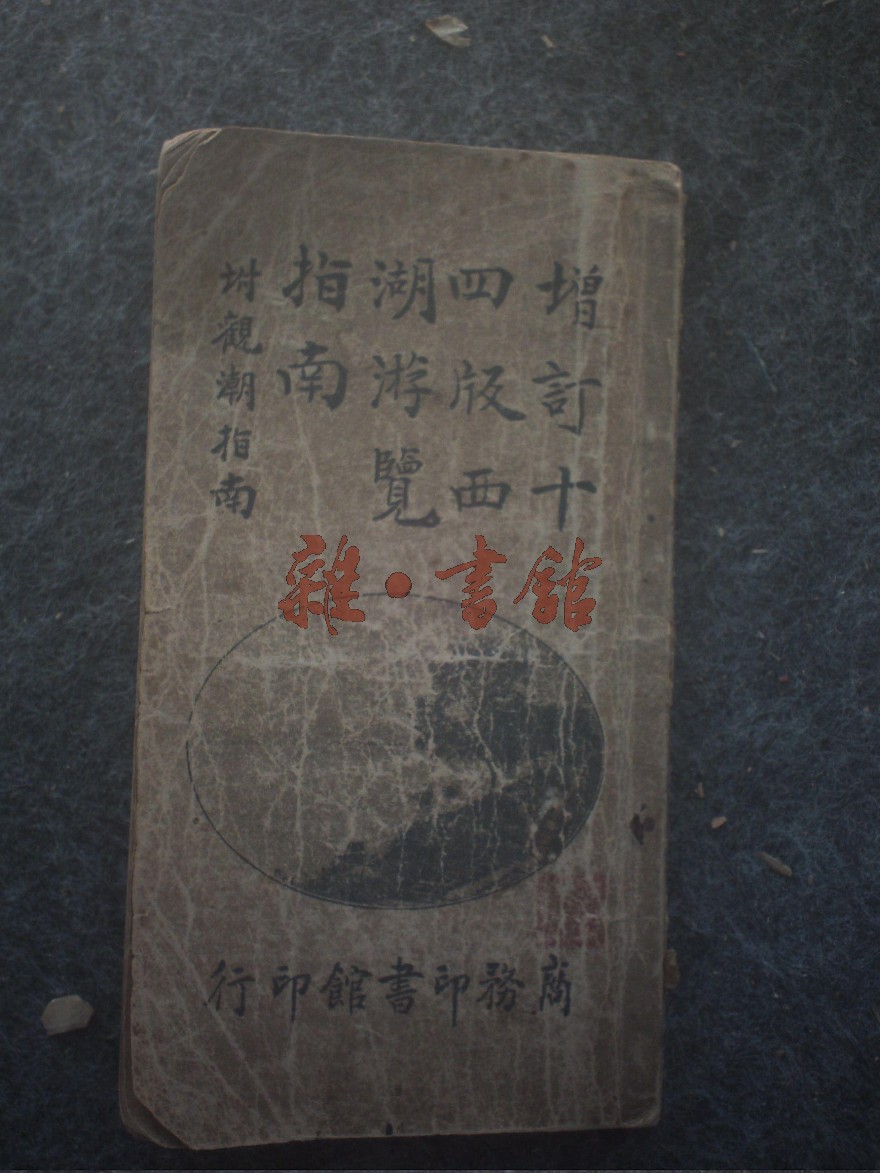 增訂十
四版西
湖游覽
指南
坿觀潮指南
雜·書館
商務印書館印行